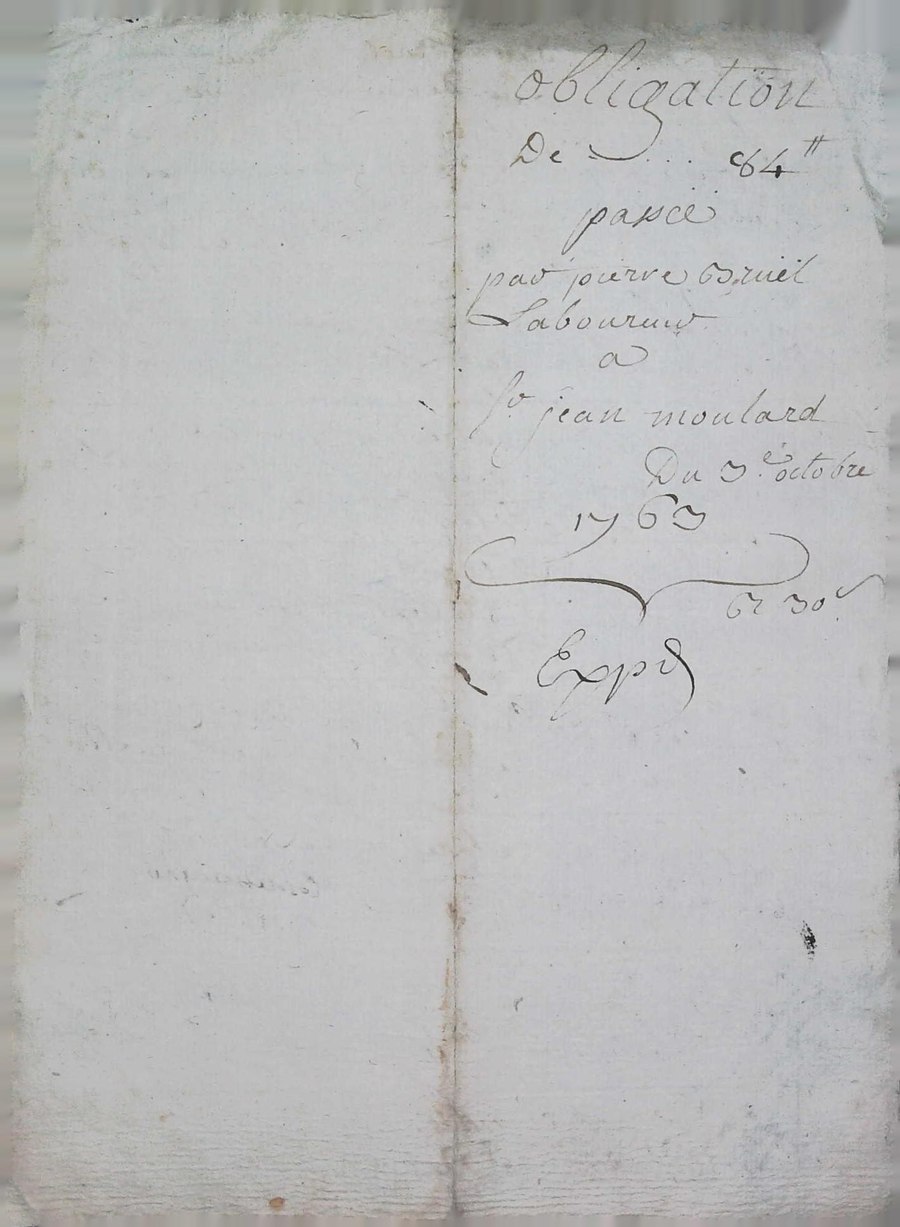 obligation
De - . . . 84 ₶
passée
par pierre Bruel
Laboureur
a
Sr jean moulard
Du 3.e octobre
1763
30 s
Exppd